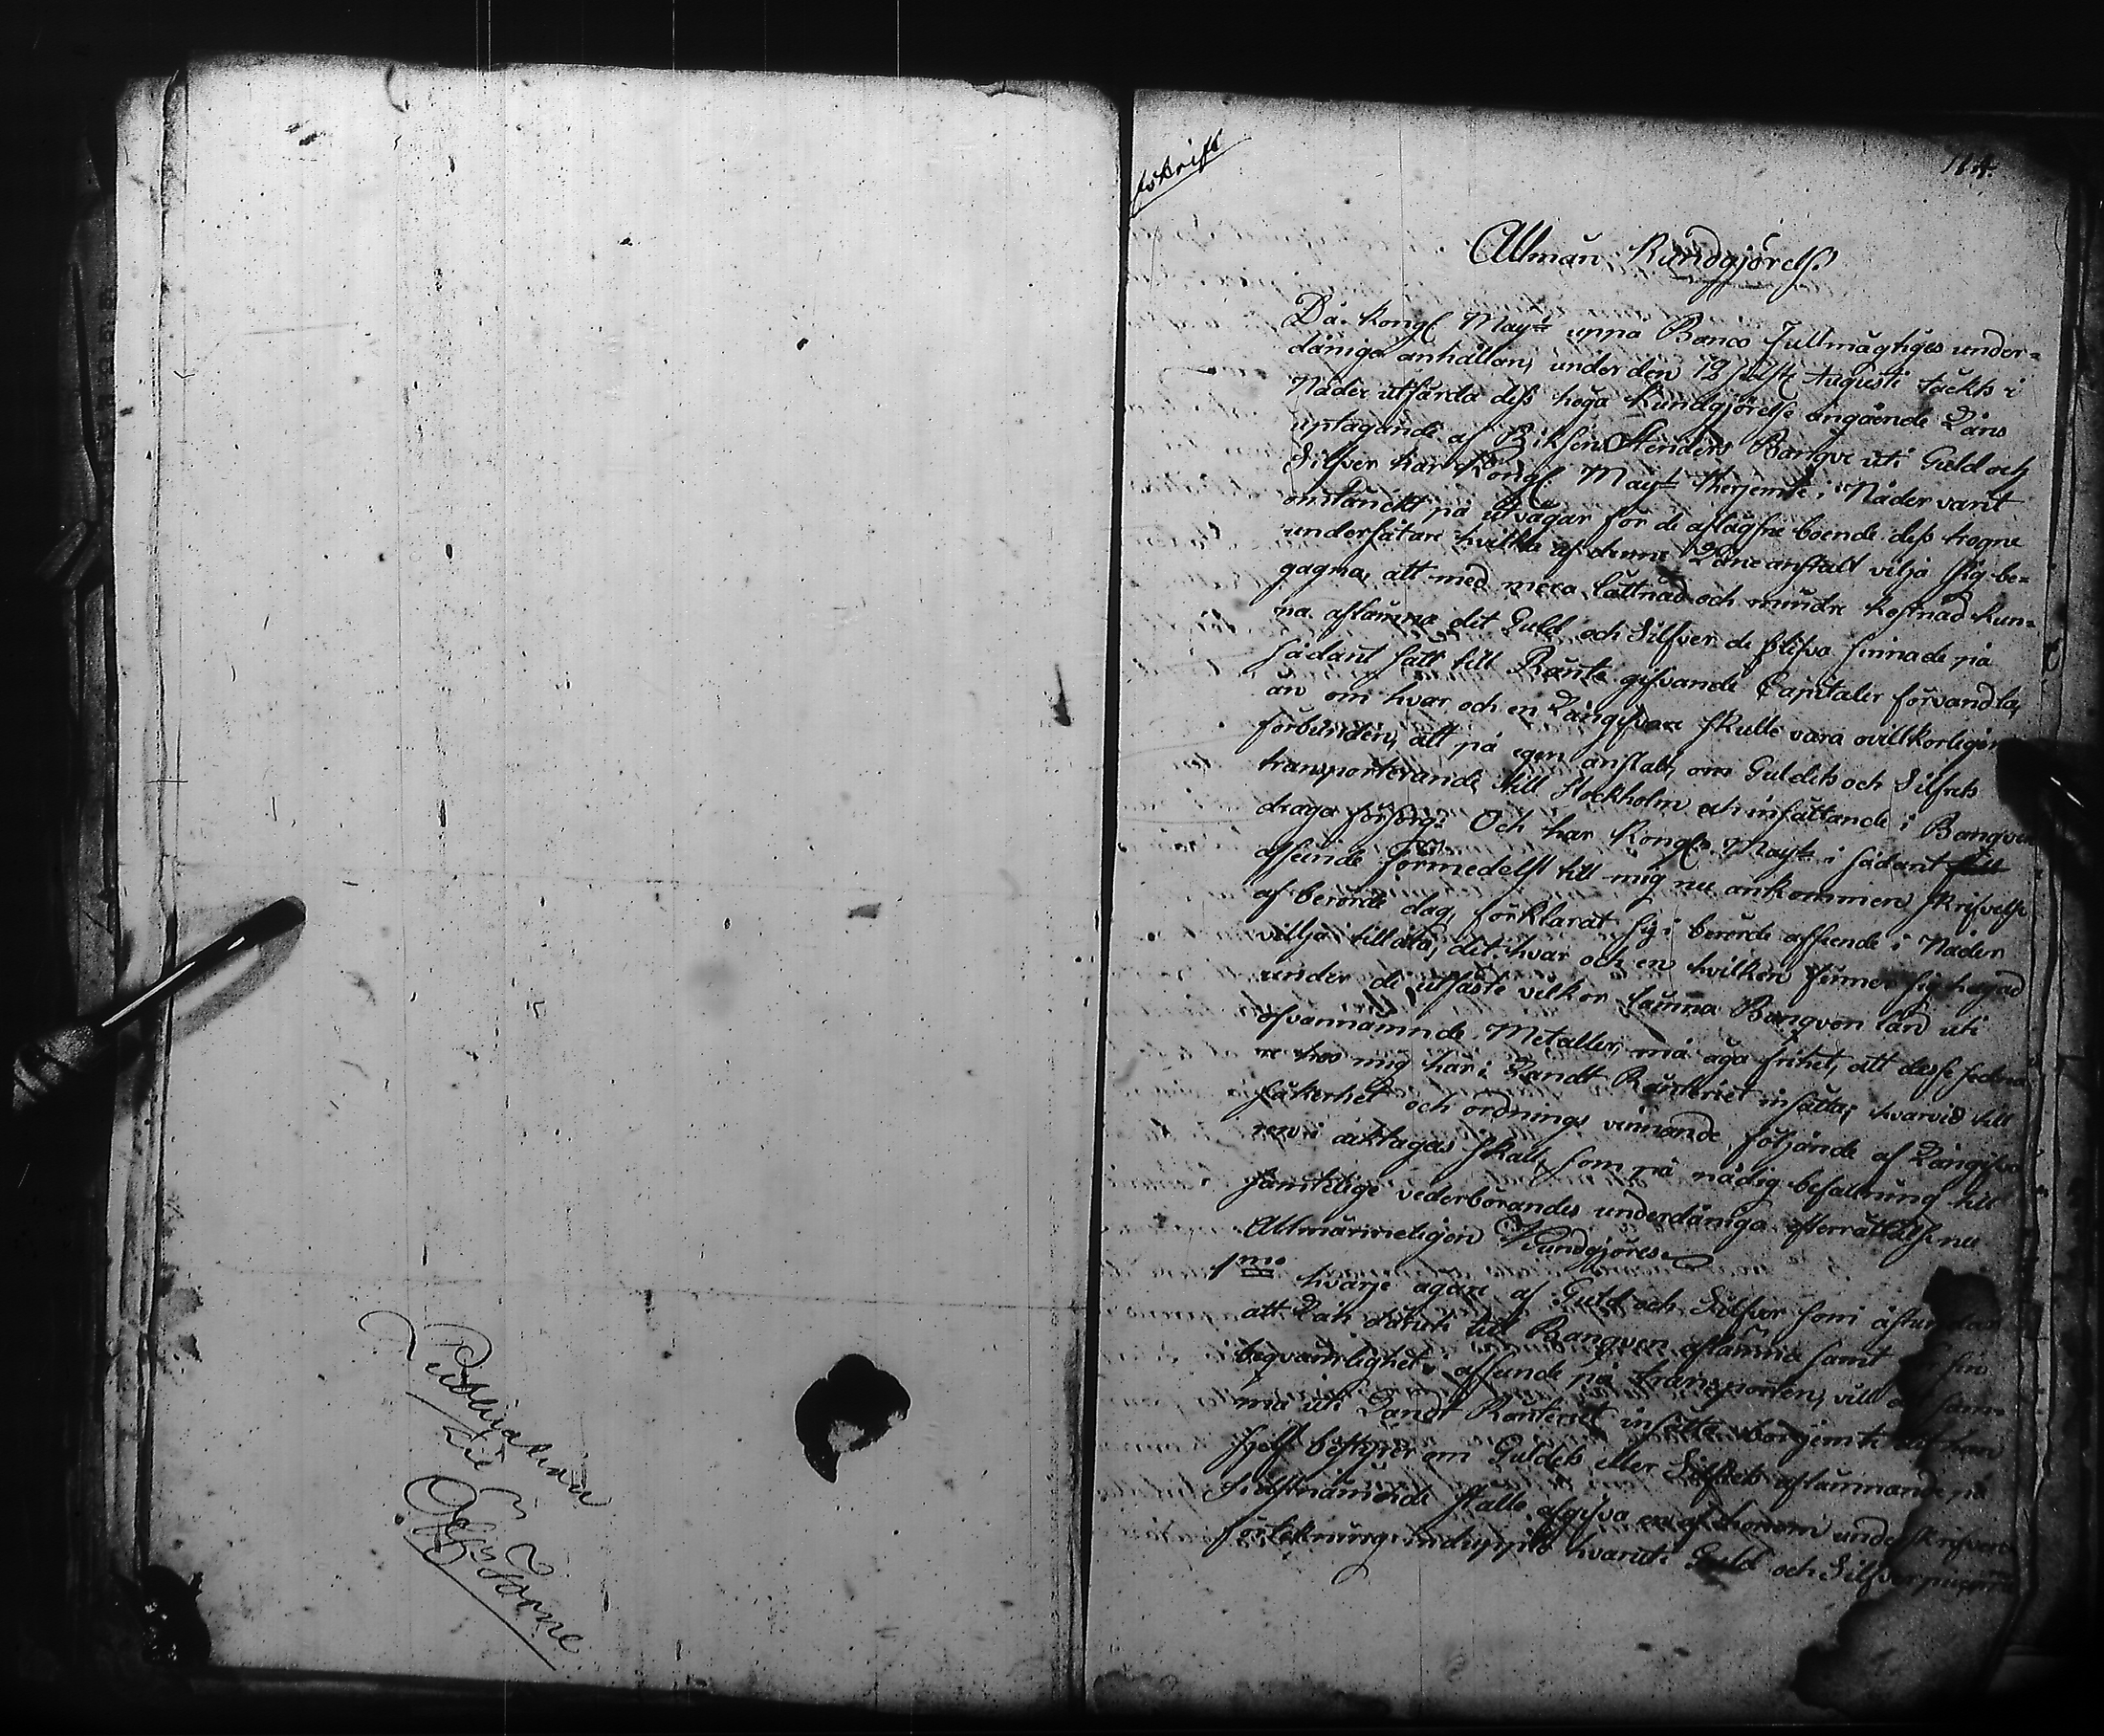 Publicationen
til
Öfv Torne
afskrift
114.
Allmän Kundgjörelse
Då Kongl Mayt uppå Banco Fullmägtiges under-
dåniga anhållan, under den 12 sidstl: Augusti täckts i
Nåder utfärda dess höga Kundgjörelse angående Låns
uptagande af Riksens Ständers Banque uti Guld och
Silfver har Kongl Mayt therjemte i Nåder varit
omtänckt på utvägar för de aflägsne boende dess trogne
undersåtare hvilka af denne Låneanstalt vilja sig be-
gagna, att med mera lättnad och mindre kostnad kun-
na aflämna det Guld och Silfver de blifva sinnade på
sådant sätt till Ränte gifvande Capitaler förvandla,
än om hvar och en Långifvare skulle vara ovillkorligen
förbunden, att på egen anstalt, om Guldets och Silfrets
transporterande till Stockholm och insättande i Banquen
draga försorg: Och har Kongl Mayt i sådant
afseende förmedelst till mig nu ankommen skrifvelse
af berörde dag, förklarat sig i berörde afseende i Nåder
vilja tillåta, det hvar och en hvilken finner sig hugad
under de utsåtte vilkor lämna Banquen lån uti
ofvannämnde Metaller, må äga frihet, att desse sedna-
re hos mig här i Landt Ränteriet insätta; hvarvid till
säkerhet och ordnings vinnande följande af Långifva-
ren i akttagas skall, som på nådig befallning till
samtelige vederbörandes underdåniga efterrättelse nu
Allmänneligen Kundgjöres.
1mo hvarje ägare af Guld och Silfver som åstundar
att Lån däruti till Banquen aflämna samt för sin
beqvämlighet i afseende på transporten, vill det sam-
ma uti Landt Ränteriet insätta, bör jemte det han
sjelf bestyrer om Guldets eller Silfrets aflämnande på
sidstnämnde ställe afgifva en af honom underskrifven
förtekning induppli hvaruti Guld och Silfver